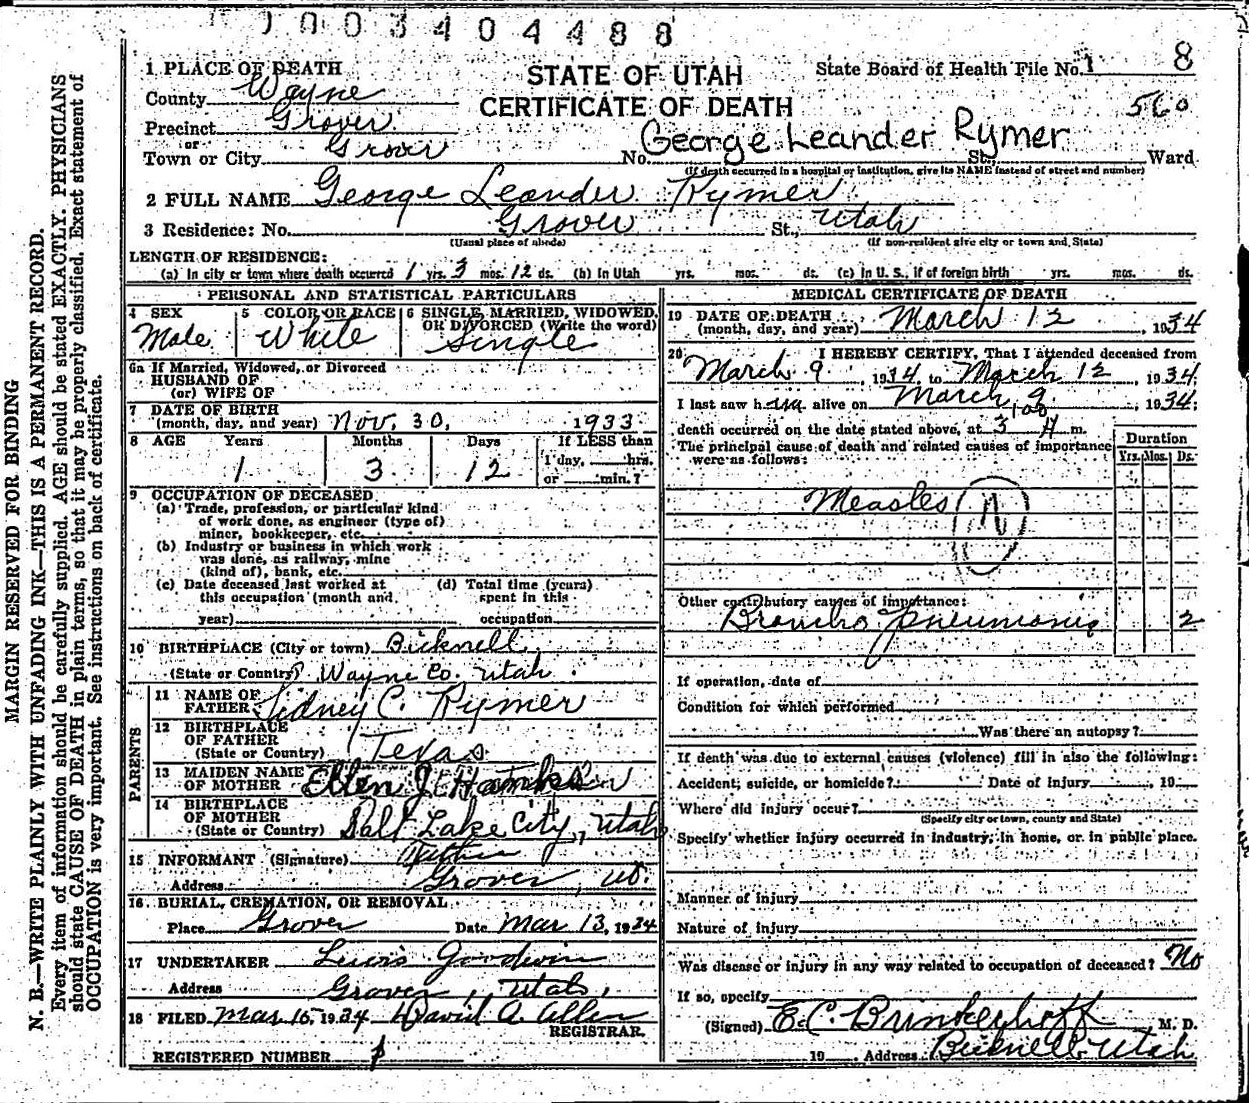 1003404488
8
1 PLACE OF DEATH
County Wayne
Precinct Grover
or
Town or City Grover
STATE OF UTAH
CERTIFICATE OF DEATH
State Board of Health File No. 1
560
No. George Leander Rymer St., Ward
(If death occurred in a hospital or institution, give its NAME instead of street and number)
2 FULL NAME George Leander Rymer
3 Residence: No. Grover St., Utah
(Usual place of abode) (If non-resident give city or town and State)
LENGTH OF RESIDENCE:
(a) In city or town where death occurred 1 yrs. 3 mos. 12 ds. (b) In Utah yrs. mos. ds. (c) In U. S., if of foreign birth yrs. mos. ds.
PERSONAL AND STATISTICAL PARTICULARS
4 SEX Male
5 COLOR OR RACE White
6 SINGLE, MARRIED, WIDOWED, OR DIVORCED (Write the word) Single
6a If Married, Widowed, or Divorced
HUSBAND OF
(or) WIFE OF
7 DATE OF BIRTH
(month, day, and year) Nov. 30, 1933
8 AGE Years Months Days If LESS than
1 3 12 1 day, hrs.
or min.?
9 OCCUPATION OF DECEASED
(a) Trade, profession, or particular kind
of work done, as engineer (type of)
miner, bookkeeper, etc.
(b) Industry or business in which work
was done, as railway, mine
(kind of), bank, etc.
(c) Date deceased last worked at (d) Total time (years)
this occupation (month and spent in this
year) occupation
10 BIRTHPLACE (City or town) Bicknell,
(State or Country) Wayne Co. Utah.
PARENTS
11 NAME OF
FATHER Sidney C. Rymer
12 BIRTHPLACE
OF FATHER
(State or Country) Texas
13 MAIDEN NAME
OF MOTHER Ellen J.
14 BIRTHPLACE
OF MOTHER
(State or Country) Salt Lake City, Utah
15 INFORMANT (Signature)
Address Grover, Ut.
16 BURIAL, CREMATION, OR REMOVAL
Place Grover Date Mar 13, 1934
17 UNDERTAKER Lewis Goodwin
Address Grover, Utah,
18 FILED Mar 15, 1934 David A. Allen
REGISTRAR.
REGISTERED NUMBER 1
MEDICAL CERTIFICATE OF DEATH
19 DATE OF DEATH
(month, day, and year) March 12, 1934
20 I HEREBY CERTIFY, That I attended deceased from
March 9, 1934 to March 12, 1934
I last saw him alive on March 9, 1934;
death occurred on the date stated above, at 3 A m.
The principal cause of death and related causes of importance
were as follows:
Duration
Yrs. Mos. Ds.
Measles
Other contributory causes of importance:
Broncho Pneumonia 2
If operation, date of
Condition for which performed
Was there an autopsy?
If death was due to external causes (violence) fill in also the following:
Accident, suicide, or homicide? Date of injury , 19
Where did injury occur?
(Specify city or town, county and State)
Specify whether injury occurred in industry, in home, or in public place.
Manner of injury
Nature of injury
Was disease or injury in any way related to occupation of deceased? No
If so, specify
(Signed) E. C. Brinkerhoff M. D.
19 Address Bicknell Utah
MARGIN RESERVED FOR BINDING
N. B.—WRITE PLAINLY WITH UNFADING INK—THIS IS A PERMANENT RECORD.
Every item of information should be carefully supplied. AGE should be stated EXACTLY. PHYSICIANS
should state CAUSE OF DEATH in plain terms, so that it may be properly classified. Exact statement of
OCCUPATION is very important. See instructions on back of certificate.